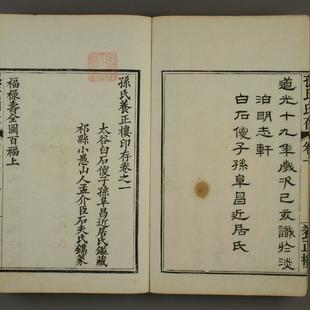 道光十九年歲次己亥識於淡
泊明志軒
白石傻子孫阜昌近居氏
孫氏養正樓印存卷之一
太谷白石傻子孫阜昌近居氏鑑藏
祁縣小愚山人孟介臣石夫氏鐫篆
福祿壽全圖百福上